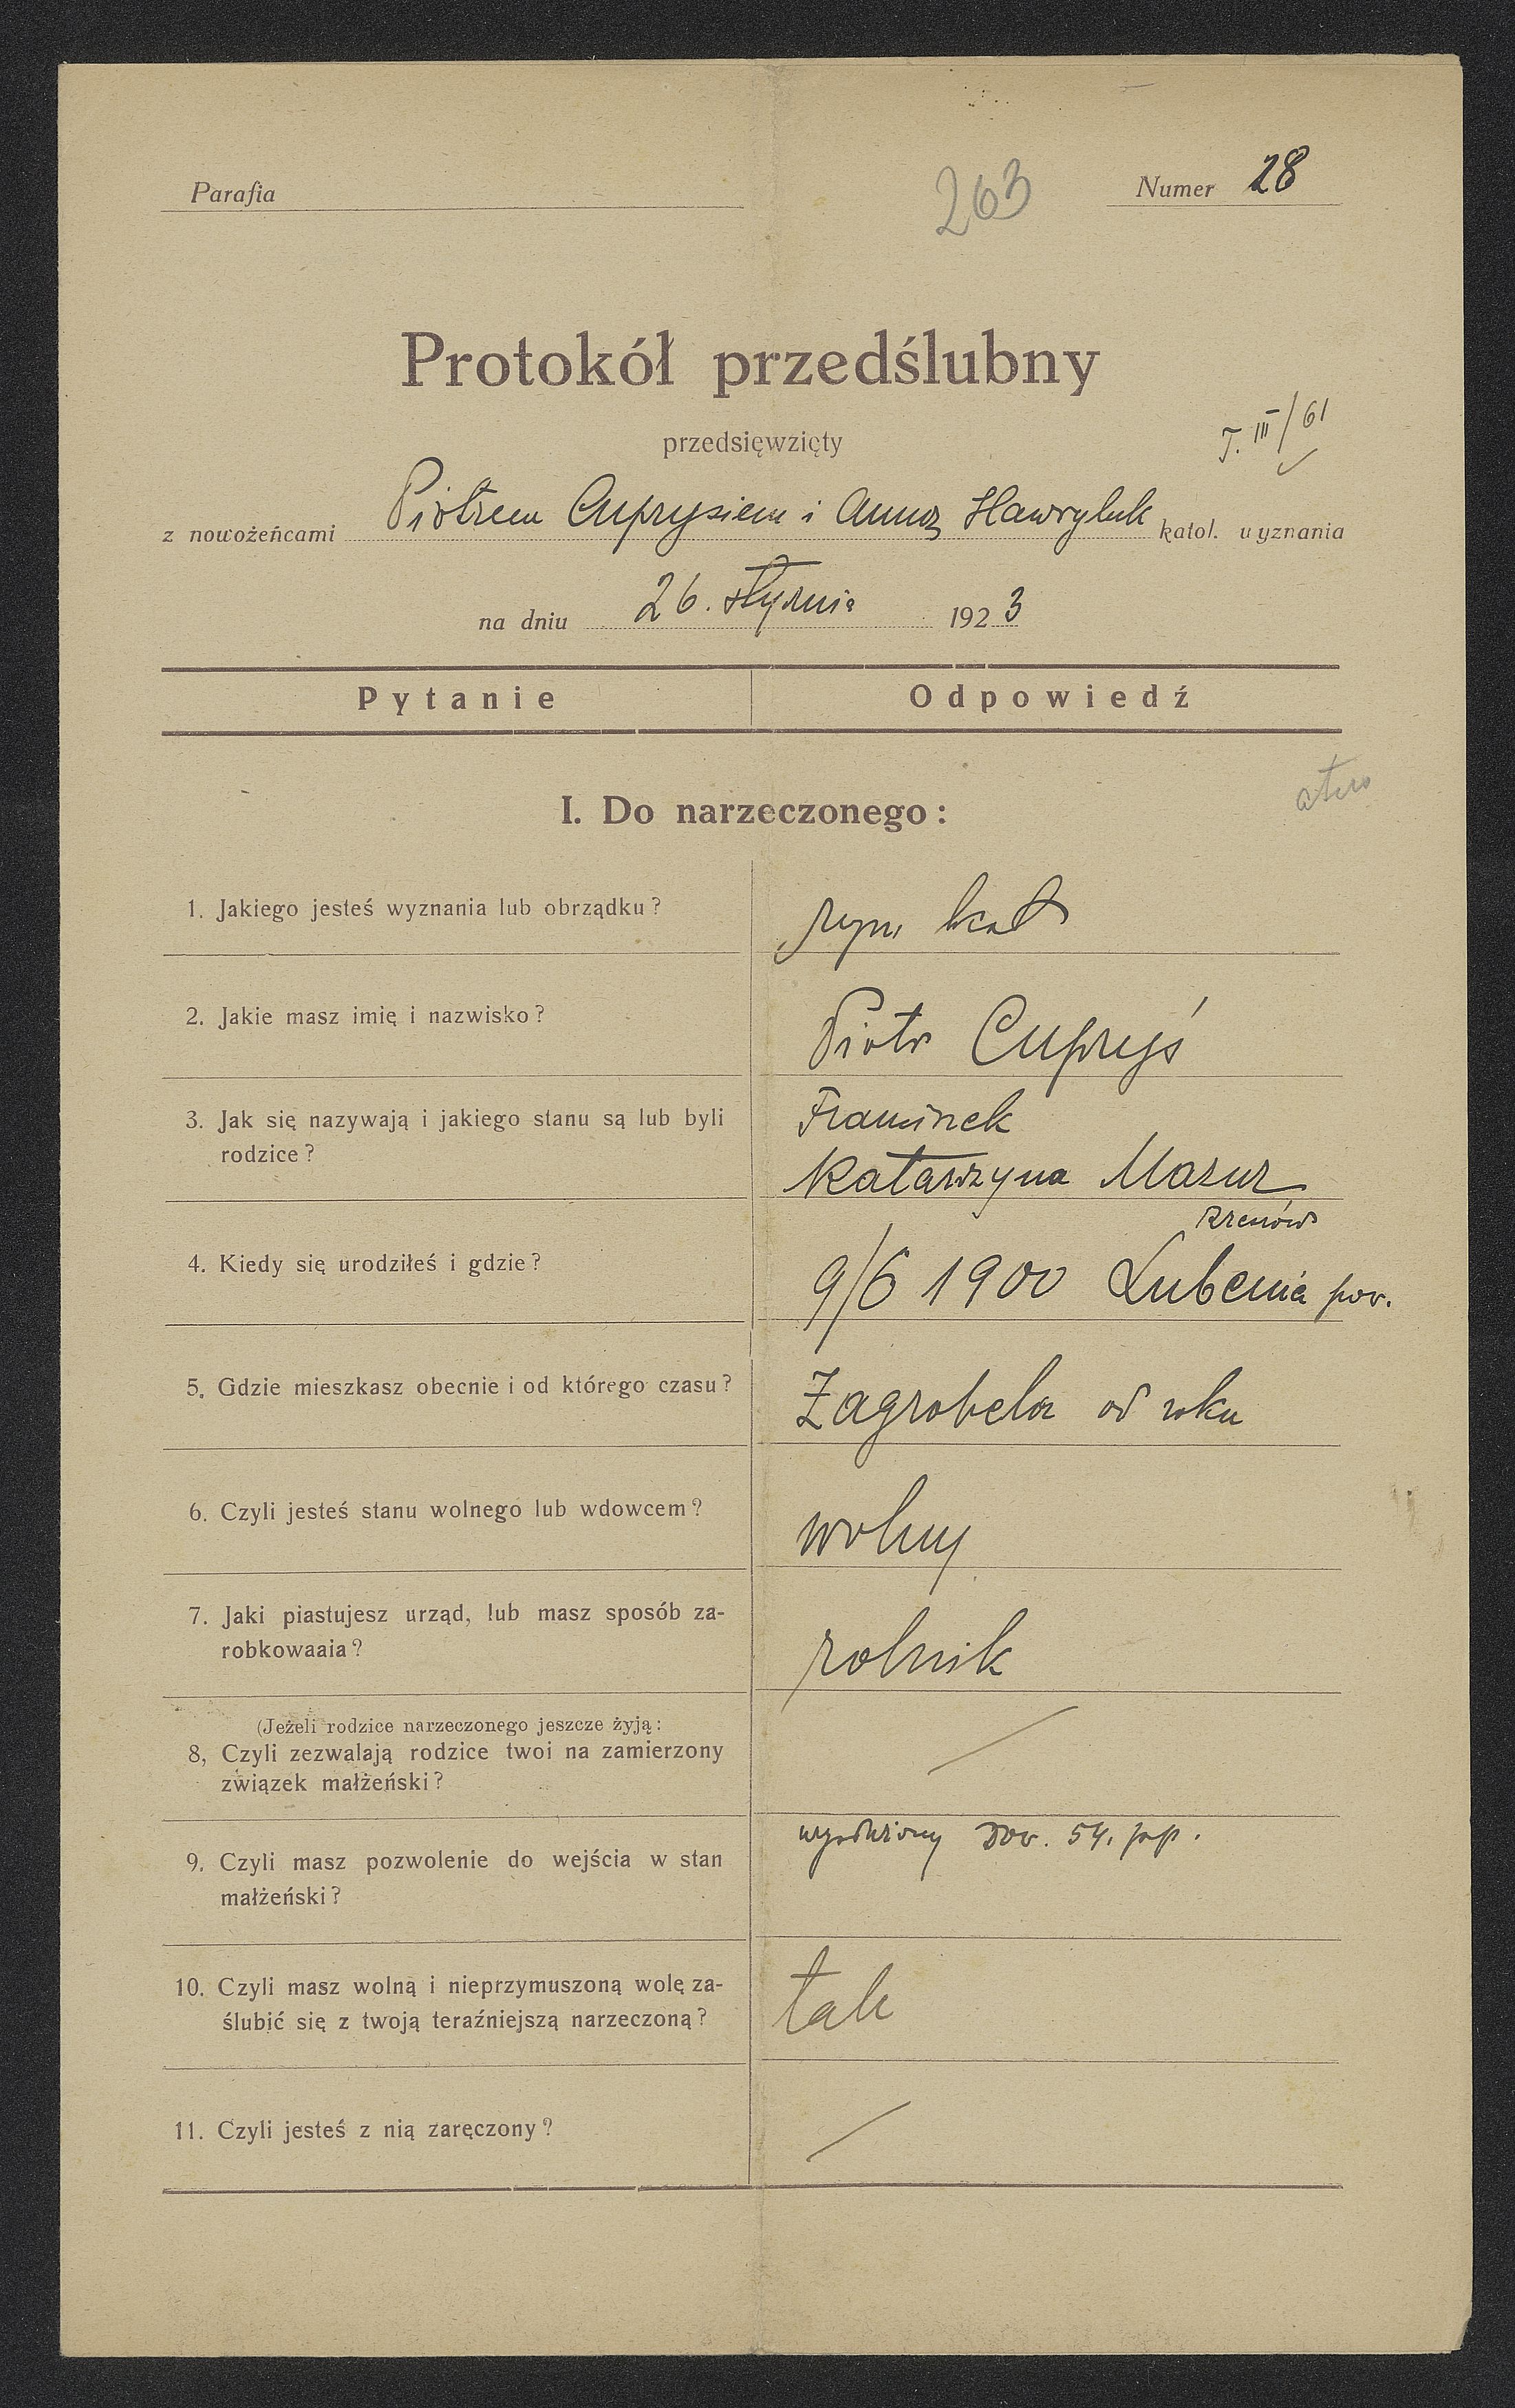 Parafia
263
Numer 28
Protokół przedślubny
przedsięwzięty
T. III/61
z nowożeńcami Piotrem Cuprysiem i Anną Hawryluk katol. wyznania
na dniu 26. stycznia 1923
Pytanie Odpowiedź
I. Do narzeczonego:
1. Jakiego jesteś wyznania lub obrządku? rzym. kat
2. Jakie masz imię i nazwisko? Piotr Cupryś
3. Jak się nazywają i jakiego stanu są lub byli Franciszek
rodzice? Katarzyna Mazur
Rzeszów
4. Kiedy się urodziłeś i gdzie? 9/6 1900 Lubenia pow.
5. Gdzie mieszkasz obecnie i od którego czasu? Zagrobela od roku
6. Czyli jesteś stanu wolnego lub wdowcem? wolny
7. Jaki piastujesz urząd, lub masz sposób za-
robkowaaia? rolnik
(Jeżeli rodzice narzeczonego jeszcze żyją:
8, Czyli zezwalają rodzice twoi na zamierzony
związek małżeński?
54. pp.
9. Czyli masz pozwolenie do wejścia w stan
małżeński?
10. Czyli masz wolną i nieprzymuszoną wolę za-
ślubić się z twoją teraźniejszą narzeczoną? tak
11. Czyli jesteś z nią zaręczony?